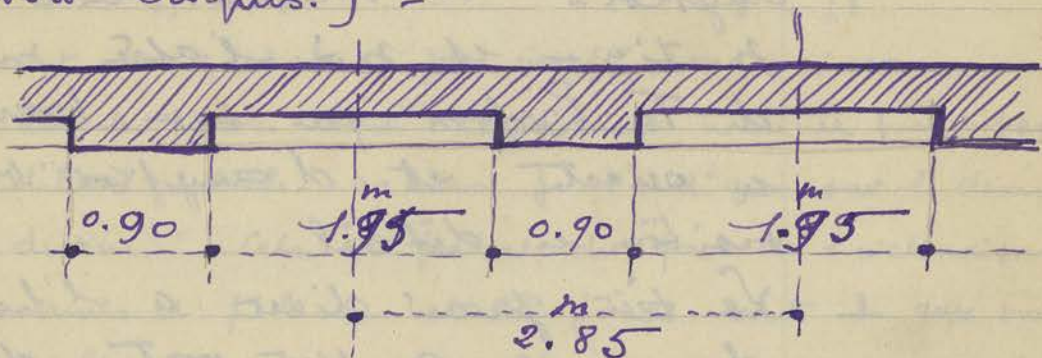 0.90 1.95 m 0.90 1.95 m
m
2.85